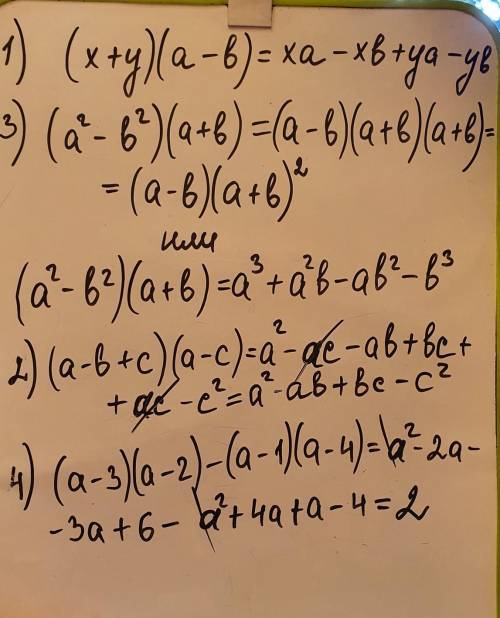 1) (x+y)(a-в)=xa-xв+ya-yв
3) (a²-в²)(a+в)=(a-в)(a+в)(a+в)=
=(a-в)(a+в)²
или
(a²-в²)(a+в)=a³+a²в-aв²-в³
2) (a-в+c)(a-c)=a²-ac-aв+вc+
+ac-c²=a²-aв+вc-c²
4) (a-3)(a-2)-(a-1)(a-4)=a²-2a-
-3a+6-a²+4a+a-4=2